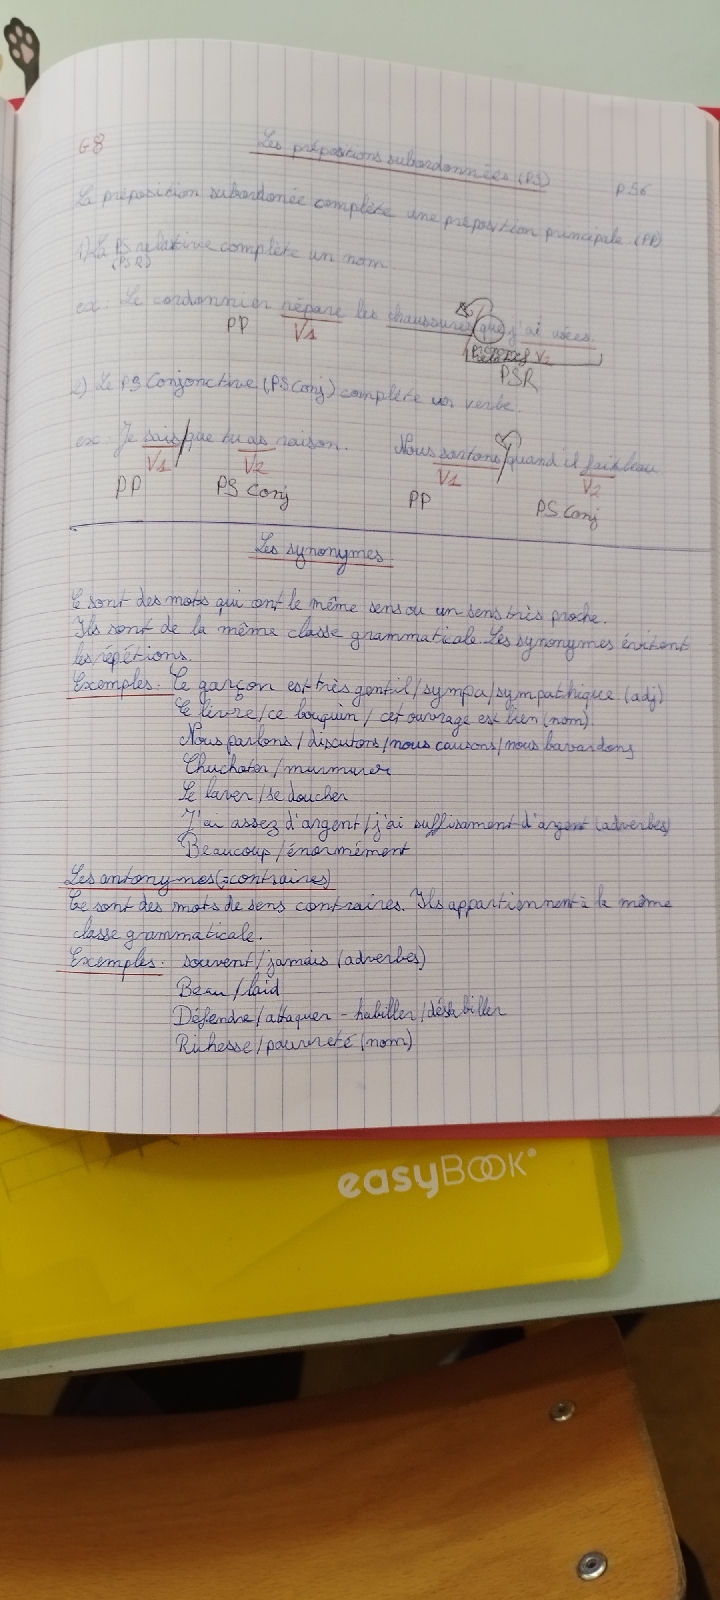 G8
Les prépositions subordonnées (PS)
p 56
La préposition subordonée complète une préposition principale (PP)
1) La PS relative complète un nom.
(PSR)
ex: Le cordonnier répare les chaussures que j'ai usées.
PP V1 V2
PSR
2) La PS Conjonctive (PS Conj) complète un verbe.
ex: Je sais/que tu as raison. Nous sortons/quand il fait beau
V1 V2 V1 V2
PP PS Conj PP PS Conj
Les synonymes
Ce sont des mots qui ont le même sens ou un sens très proche.
Ils sont de la même classe grammaticale. Les synonymes évitent
les répétions.
Exemples: Ce garçon est très gentil/sympa/sympathique (adj)
Ce livre/ce bouquin/cet ouvrage est bien (nom)
Nous parlons/discutons/nous causons/nous bavardons
Chuchoter/murmurer
Se laver/se doucher
J'ai assez d'argent/j'ai suffisament d'argent (adverbes)
Beaucoup/énormément
Les antonymes (=contraires)
Ce sont des mots de sens contraires. Ils appartiennent à la même
classe grammaticale.
Exemples: souvent/jamais (adverbes)
Beau/laid
Défendre/attaquer - habiller/déshabiller
Richesse/pauvreté (nom)
easyBOOK